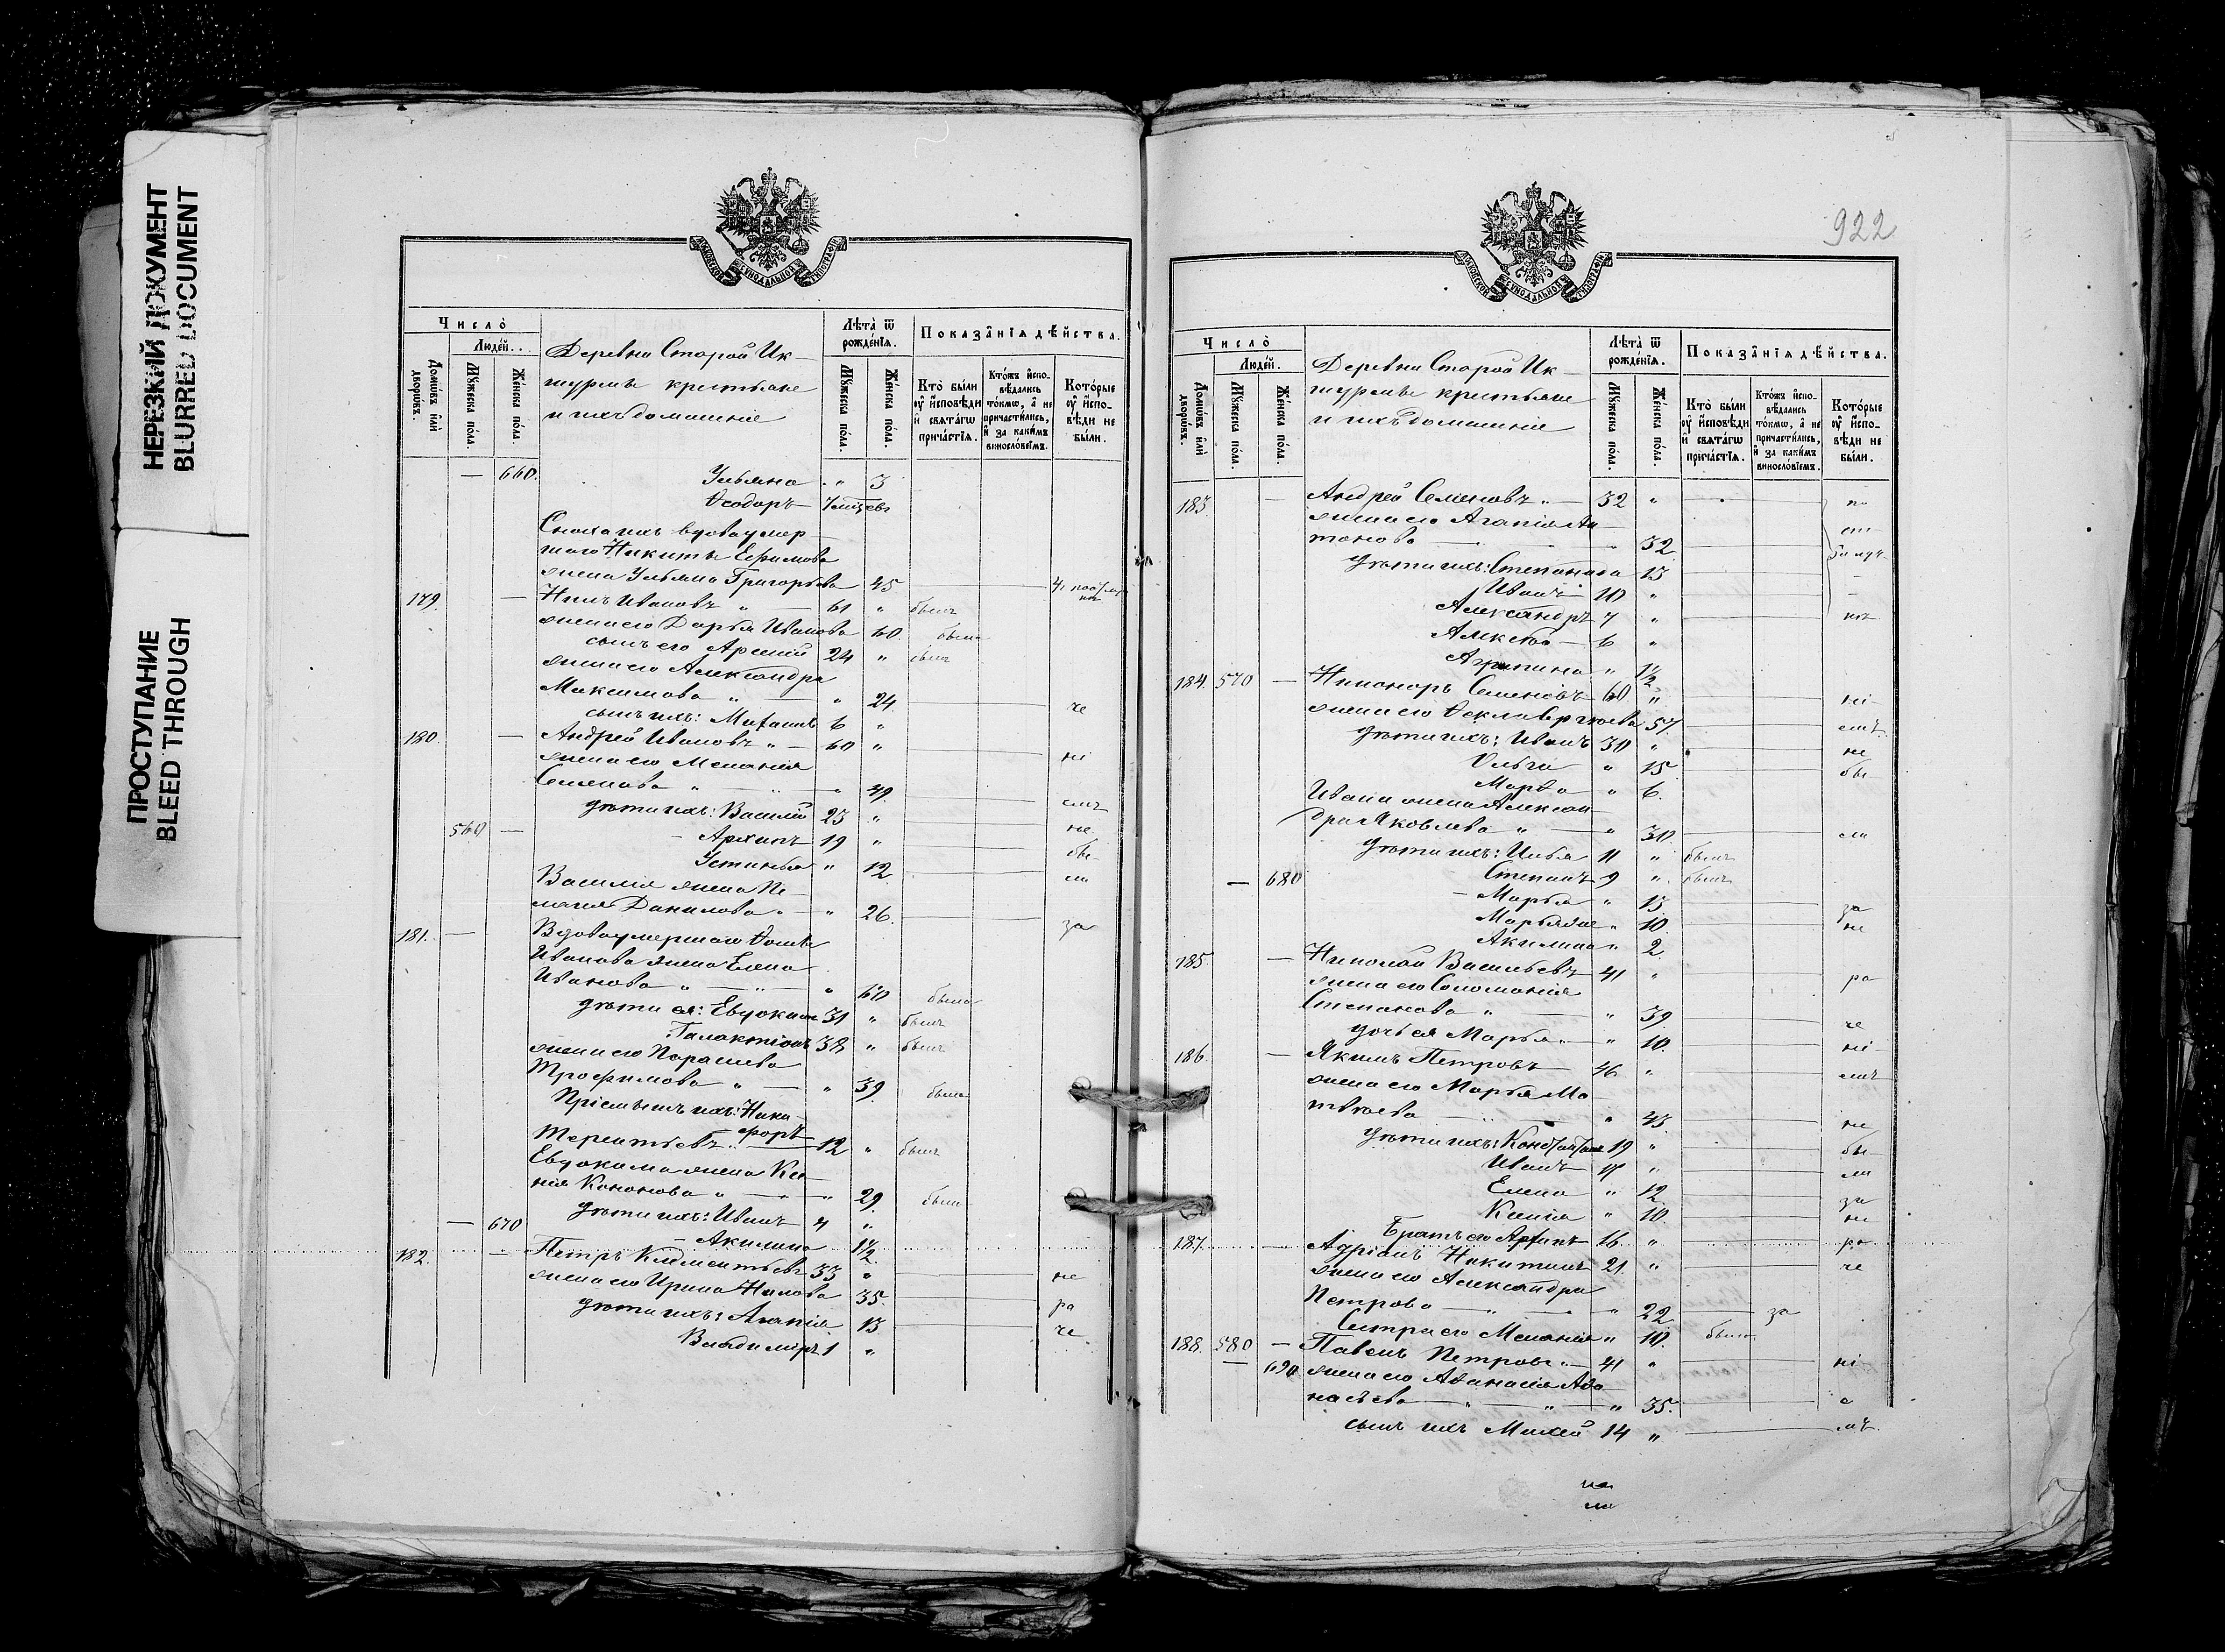 НЕРЕЗКИЙ ДОКУМЕНТ
BLURRED DOCUMENT
ПРОСТУПАНИЕ
BLEED THROUGH
МОСКОВСКОЙ СѴНОДАЛЬНОЙ ТИПОГРАФІИ
Число̀
Люде́й.
Домѡ́въ и҆лѝ дворѡ́въ.
Мꙋ́жеска по́ла.
Же́нска по́ла.
Деревни Старой Ик-
шурмы крестьяне
и ихъ домашніе
Лѣ́та ѿ рожде́нїѧ.
Мꙋ́жеска по́ла.
Же́нска по́ла.
Показа̑нїѧ дѣ́йства.
Кто̀ бы́ли ᲂу҆ и҆́сповѣди и҆ свѧта́гѡ прича́стїѧ.
Кто́жъ и҆спо-вѣ́дались то́кмѡ, а҆ не причасти́лись, и҆ за каки́мъ винослові́емъ.
Кото́рые ᲂу҆ и҆́спо-вѣди не бы́ли.
— 660. Ульяна " 3
Ѳеодоръ 7 мѣсяцевъ
Сноха ихъ вдова умер-
шаго Никиты Ефимова
жена Ульяна Григорьева 45
179. — Нилъ Ивановъ " — 61 " былъ
жена его Дарья Иванова 60 была
сынъ его Арсеній 24 " былъ
жена его Александра
Максимова " — " 24. че
сынъ ихъ: Михаилъ 6 "
180. — Андрей Ивановъ " — 60 " ні
жена его Меланія
Семенова " — " 49. емъ
дѣти ихъ: Василій 23 " не
560 — Архипъ 19 " бы-
Устинья " 12. ли
Василія жена Пе-
лагія Данилова " — " 26. за
181. — Вдова умершаго Ѳомы
Иванова жена Елена
Иванова " — " — " 60 была
дѣти ея: Евдокимъ 31 " былъ
Галактіонъ 38 " былъ
жена его Параскева
Трофимова " — " 39. была
Пріемышъ ихъ: Ники-
форъ
Терентьевъ — 12 " былъ
Евдокима жена Ксе-
нія Кононова " — " 29. была
дѣти ихъ: Иванъ 4 "
— 670 — Акилина 1½
182. — Петръ Климентьевъ 33 " не
жена его Ирина Нилова 35. ра
дѣти ихъ: Агапія 13 че
Владиміръ 1 "
922
МОСКОВСКОЙ СѴНОДАЛЬНОЙ ТИПОГРАФІИ
Число̀
Люде́й.
Домѡ́въ и҆лѝ дворѡ́въ.
Мꙋ́жеска по́ла.
Же́нска по́ла.
Деревни Старой Ик-
шурмы крестьяне
и ихъ домашніе
Лѣ́та ѿ рожде́нїѧ.
Мꙋ́жеска по́ла.
Же́нска по́ла.
Показа̑нїѧ дѣ́йства.
Кто̀ бы́ли ᲂу҆ и҆́сповѣди и҆ свѧта́гѡ прича́стїѧ.
Кто́жъ и҆спо-вѣ́дались то́кмѡ, а҆ не причасти́лись, и҆ за каки́мъ винослові́емъ.
Кото́рые ᲂу҆ и҆́спо-вѣди не бы́ли.
183. — Андрей Семеновъ " — 32 " по
жена его Агапія Ан-
тонова — " 32
дѣти ихъ: Степанида 13
Иванъ 10 "
Александръ 7 "
Алексѣй — 6 "
Агрипина " 1½
184. 570 — Никаноръ Семеновъ 60 " ні
жена его Ѳекла Сергѣева 57. емъ
дѣти ихъ: Иванъ 30 " не
Ольга " 15. бы-
Марѳа " 6.
Ивана жена Алексан-
дра Яковлева " — " 30. ли
дѣти ихъ: Илья 11 " былъ
— 680 Степанъ 9 " былъ
— Марья " 13. за
Марья 2я " 10. не
Акилина " 2.
185. — Николай Васильевъ 41 " ра
жена его Соломанія
Степанова " — " 39. че
дочь ея Марья " — " 10. ні
186. — Якимъ Петровъ 46. " емъ
жена его Марья Ма-
твѣева — " 43. не
дѣти ихъ: Константинъ 19 " бы-
Иванъ 17 " ли
Елена " 12 за
Ксенія " 10. не
Братъ его Архипъ 16. " ра
187. — Адріанъ Никитинъ 21. " че
жена его Александра
Петрова — " — " 22. за
Сестра его Меланія " 10. была
188. 580 — Павелъ Петровъ " — 41 " ні
— 690 жена его Аѳанасія Аѳа-
насьева — " — " — " 35. е
сынъ ихъ Михей 14 " мъ